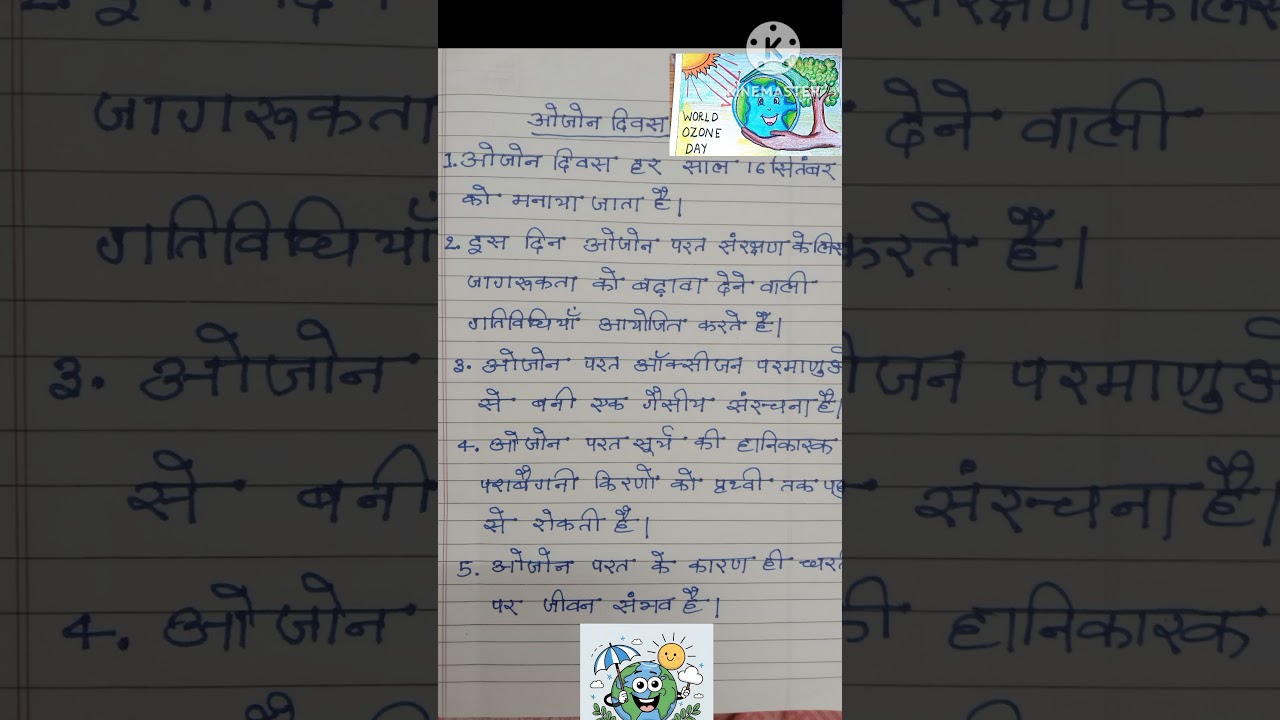 KINEMASTER
WORLD
OZONE
DAY
ओजोन दिवस
1. ओजोन दिवस हर साल 16 सितंबर
को मनाया जाता है।
2. इस दिन ओजोन परत संरक्षण के लिए
जागरूकता को बढ़ावा देने वाली
गतिविधियाँ आयोजित करते हैं।
3. ओजोन परत ऑक्सीजन परमाणुओ
से बनी एक गैसीय संरन्चना है।
4. ओजोन परत सूर्य की हानिकारक
पराबैगनी किरणों को पृथ्वी तक
से रोकती है।
5. ओजोन परत के कारण ही
पर जीवन संभव है।